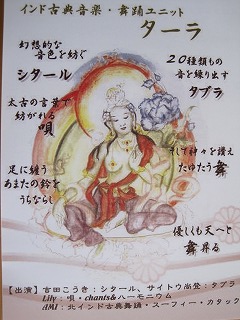 インド古典音楽・舞踊ユニット
ターラ
幻想的な
音色を紡ぐ
シタール
太古の言葉で
紡がれる
唄
足に纏う
あまたの鈴を
うちならし
20種類もの
音を繰り出す
タブラ
そして神々を讃え
たゆたう舞
優しくも天へと
舞昇る
【出演】吉田こうき：シタール、サイトウ尚登：タブラ
Lily：唄・chants&ハーモニウム
AMI：北インド古典舞踊・スーフィー・カタック